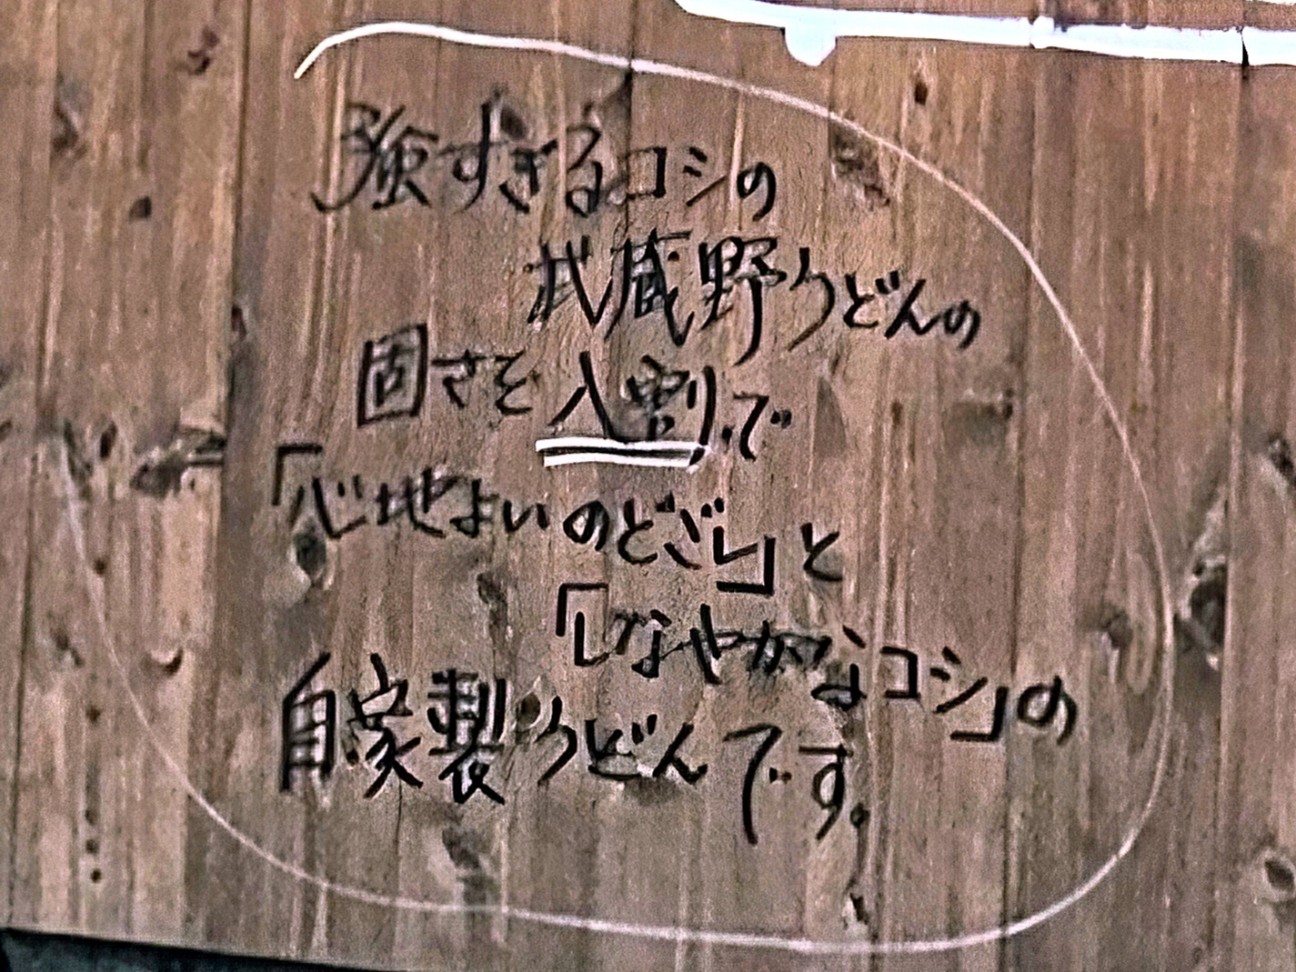 強すぎるコシの
武蔵野うどんの
固さを八割で
「心地よいのどごし」と
「しなやかなコシ」の
自家製うどんです。